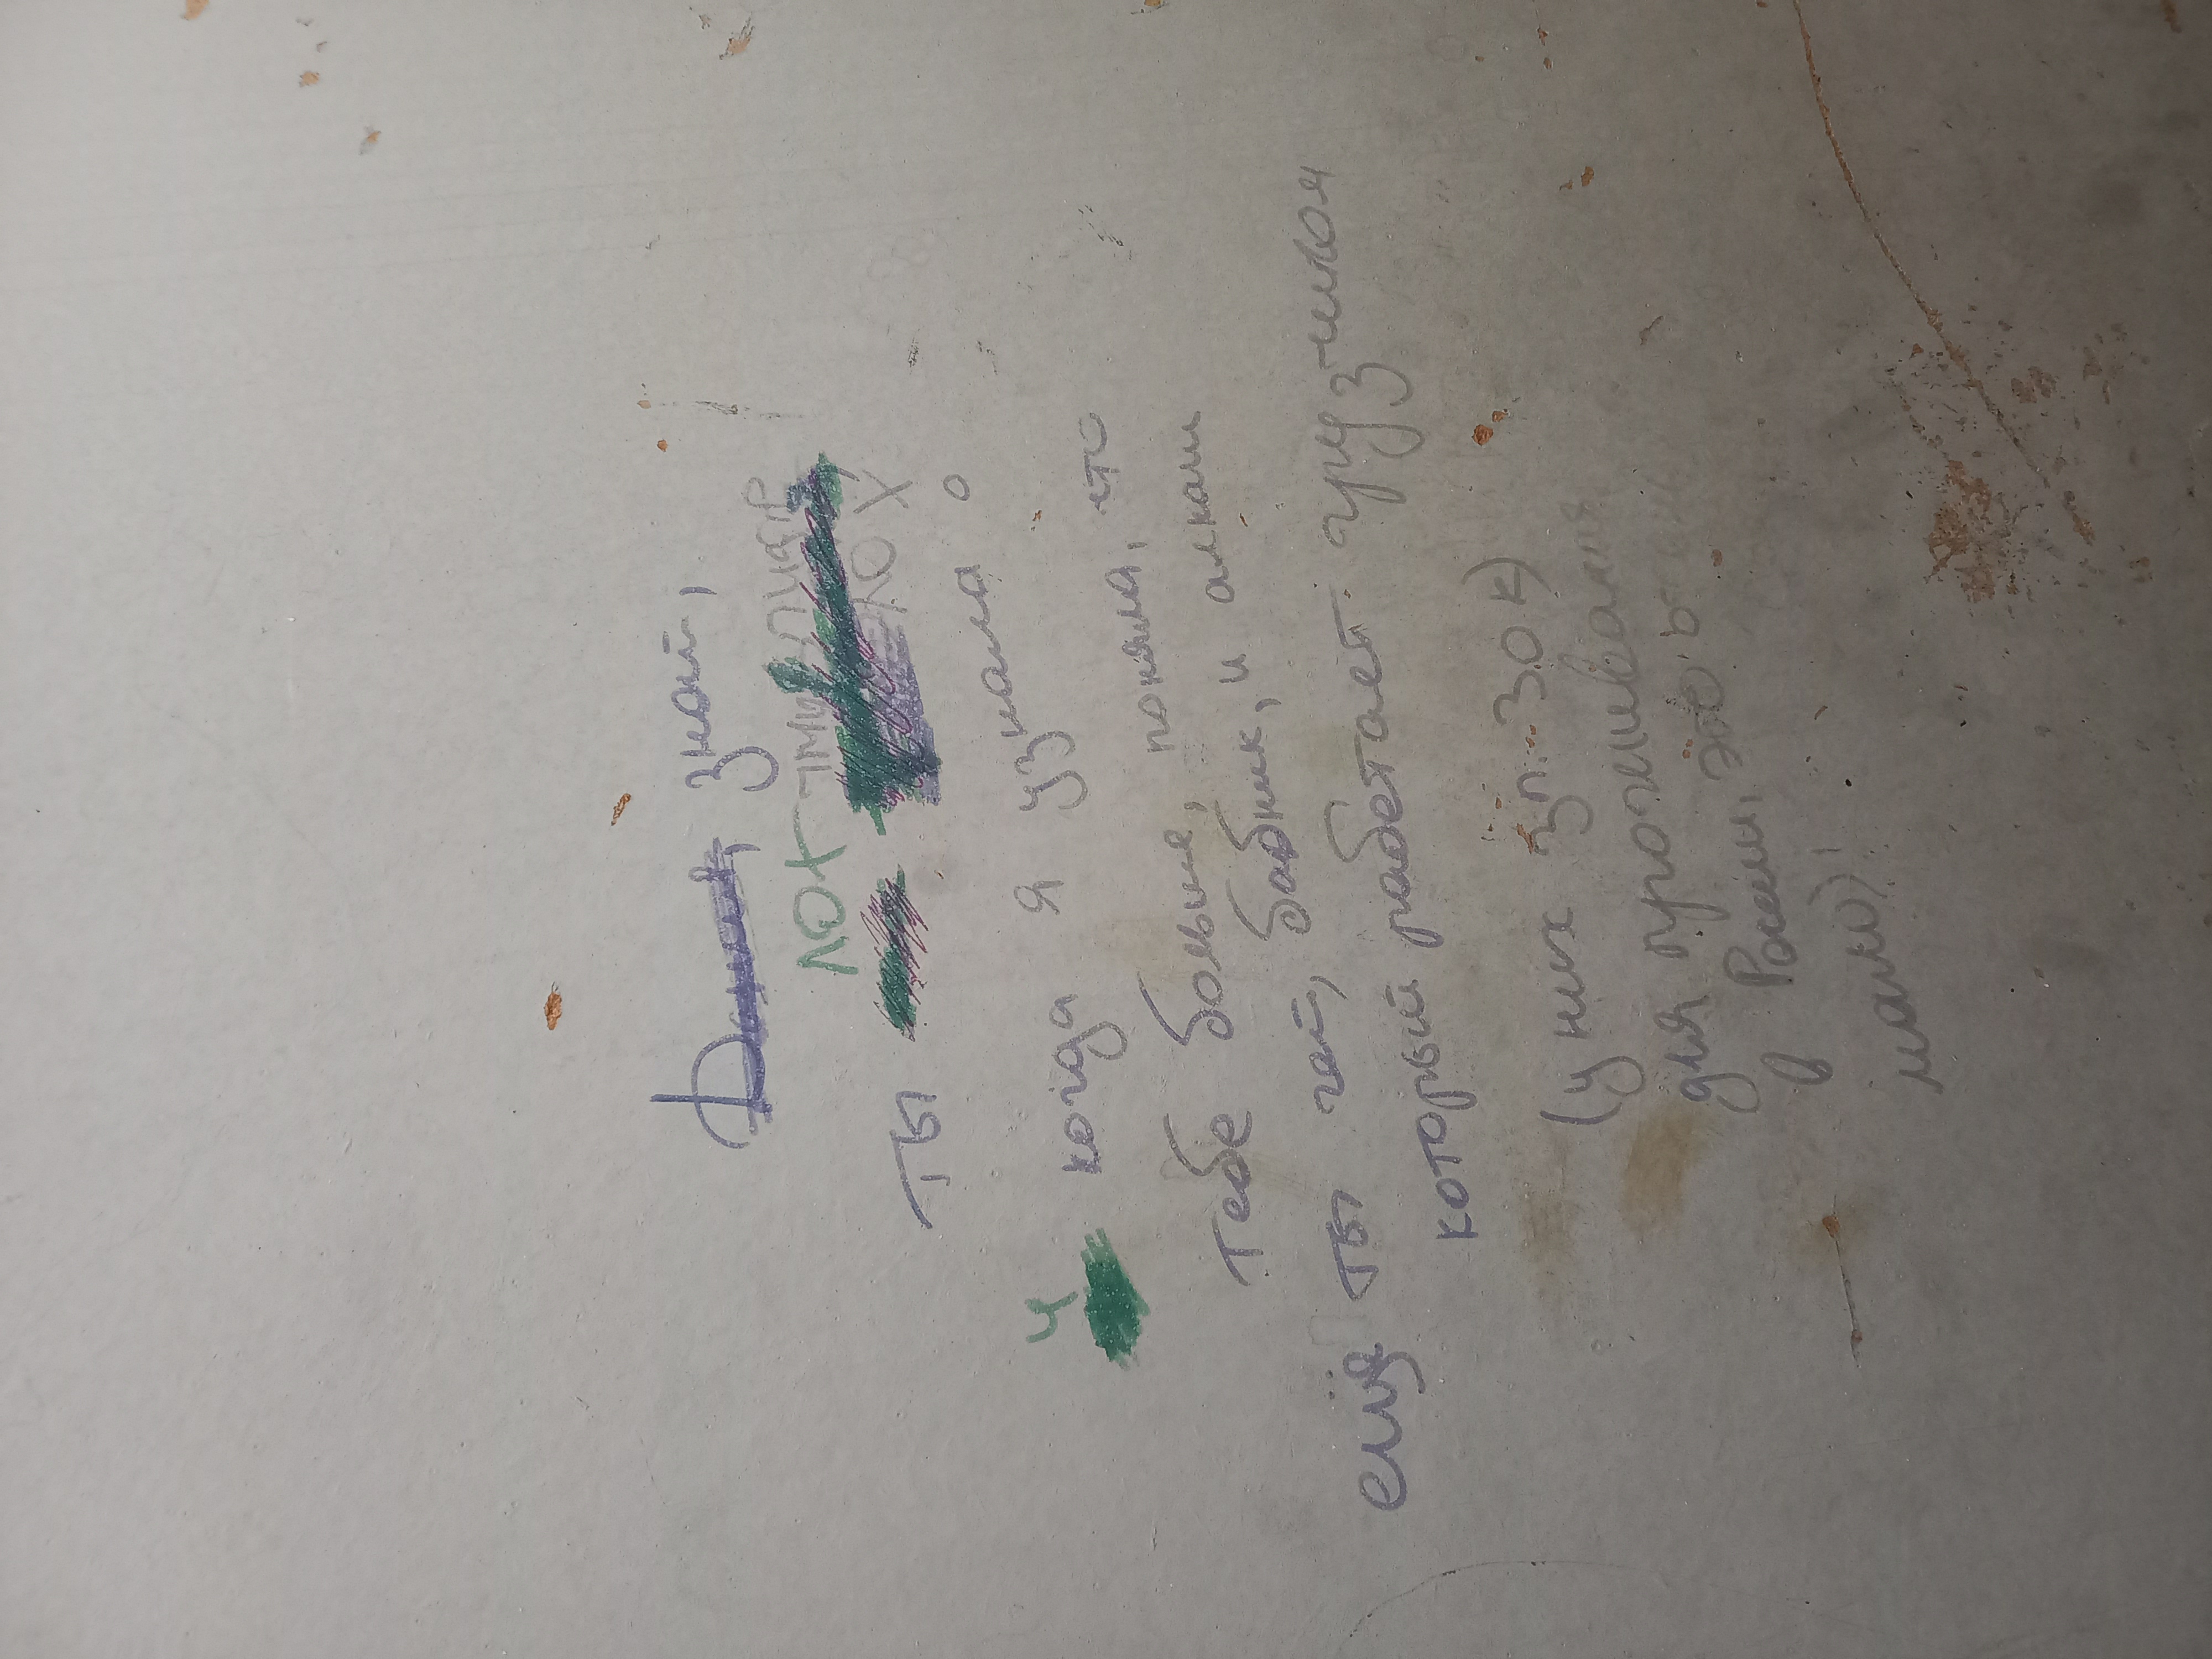 знай,
лох
ЛОХ
ты
и когда я узнала о
тебе больше, поняла, что
ещё ты гей, бабник, и алкаш
который работает грузчиком
(у них зп. 30 к)
для проживания
в России, это
мало)!